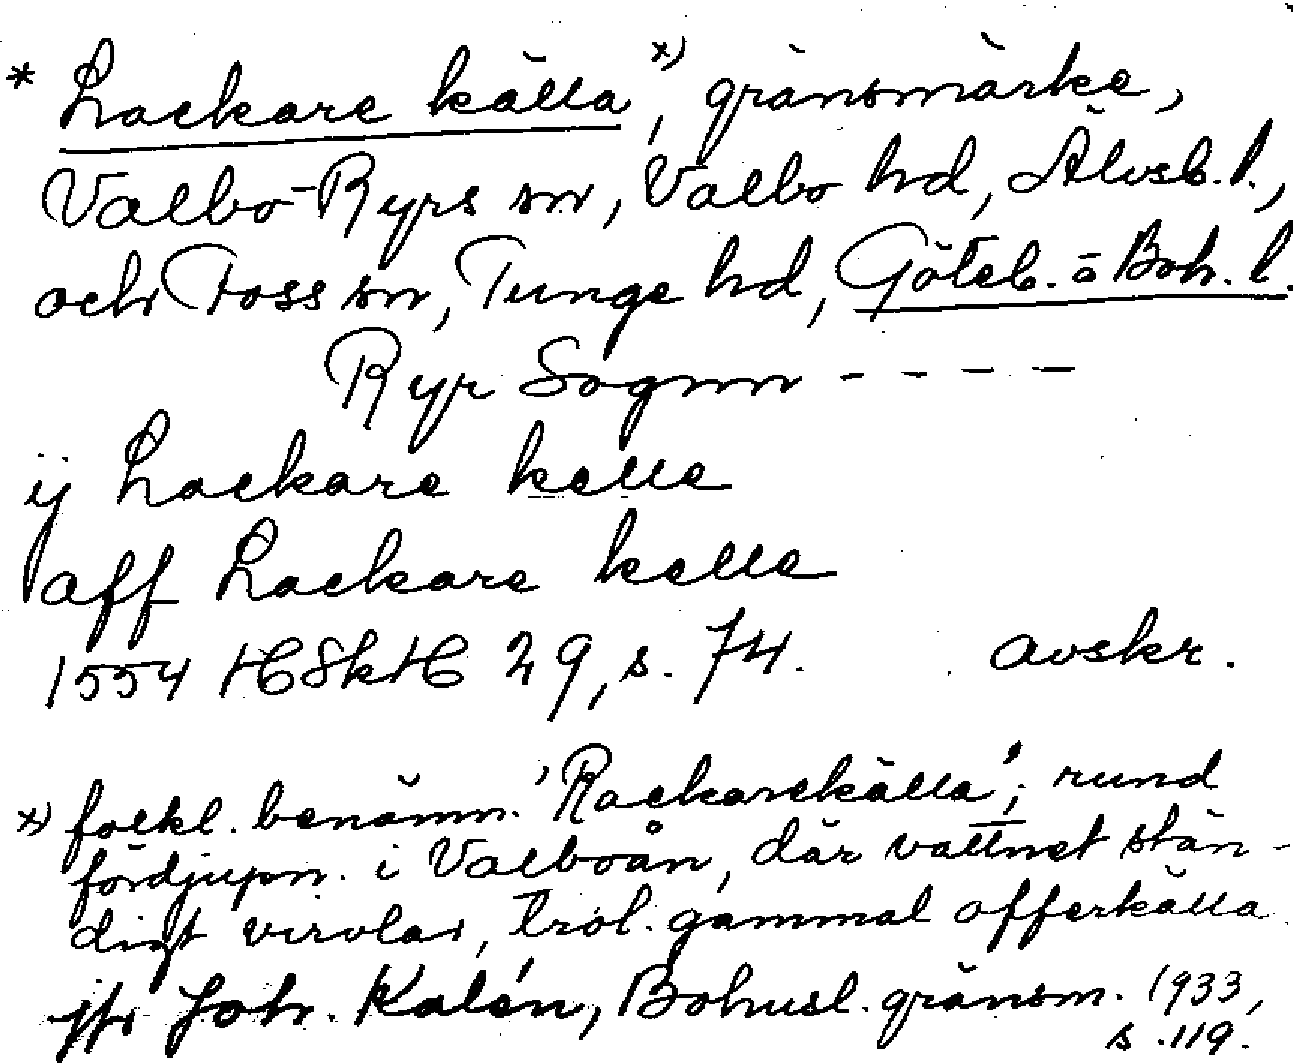 * Lackare källa *), gränsmärke,
Valbo-Ryrs sn, Valbo hd, Älvsb. l.,
och Foss sn, Tunge hd, Göteb. o Boh. l.
Ryr Sognn - - - -
ij Lackare kelle
aff Lackare kelle
1554 HSkH 29, s. 74. avskr.
*) folkl. benämn. 'Rackarekälla', rund
fördjupn. i Valboån, där vattnet stän-
digt virvlar, trol. gammal offerkälla
jfr Joh. Kalén, Bohusl. gränsm. 1933,
s. 119.